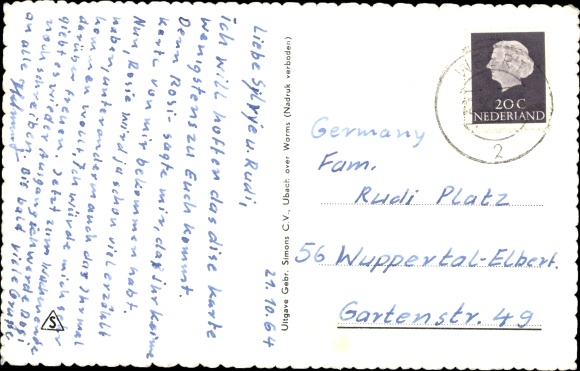 21.10.64
Liebe Sylvye u. Rudi,
ich will hoffen das dise Karte
Wenigstens zu Euch kommt.
Denn Rosi sagte mir, das ihr keine
Karte von mir bekommen habt.
Nun, Rosie wird ja schon viel erzählt
haben, unter anderm auch das Ihr mal
kommen wollt. Ich würde mich sehr
darüber freuen. Jetzt zum Wochenende
giebt es wieder Ausgang ich werde Rosi
noch schreiben. Bis bald viele Grüsse
an alle
Uitgave Gebr. Simons C.V., Ubach over Worms (Nadruk verboden)
S
20 C
NEDERLAND
2
Germany
Fam.
Rudi Platz
56 Wuppertal-Elbert.
Gartenstr. 49